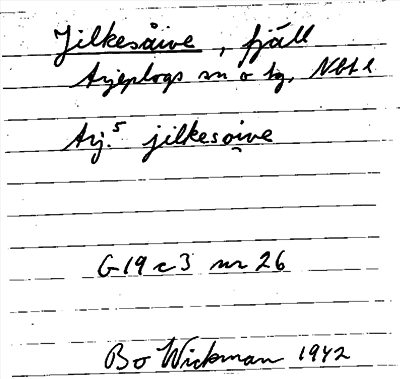 Jilkesåive, fjäll
Arjeplogs sn o tg, Nbt l
Arj.⁵ jilkesoi̭ve
G 19 c 3 nr 26
Bo Wickman 1942